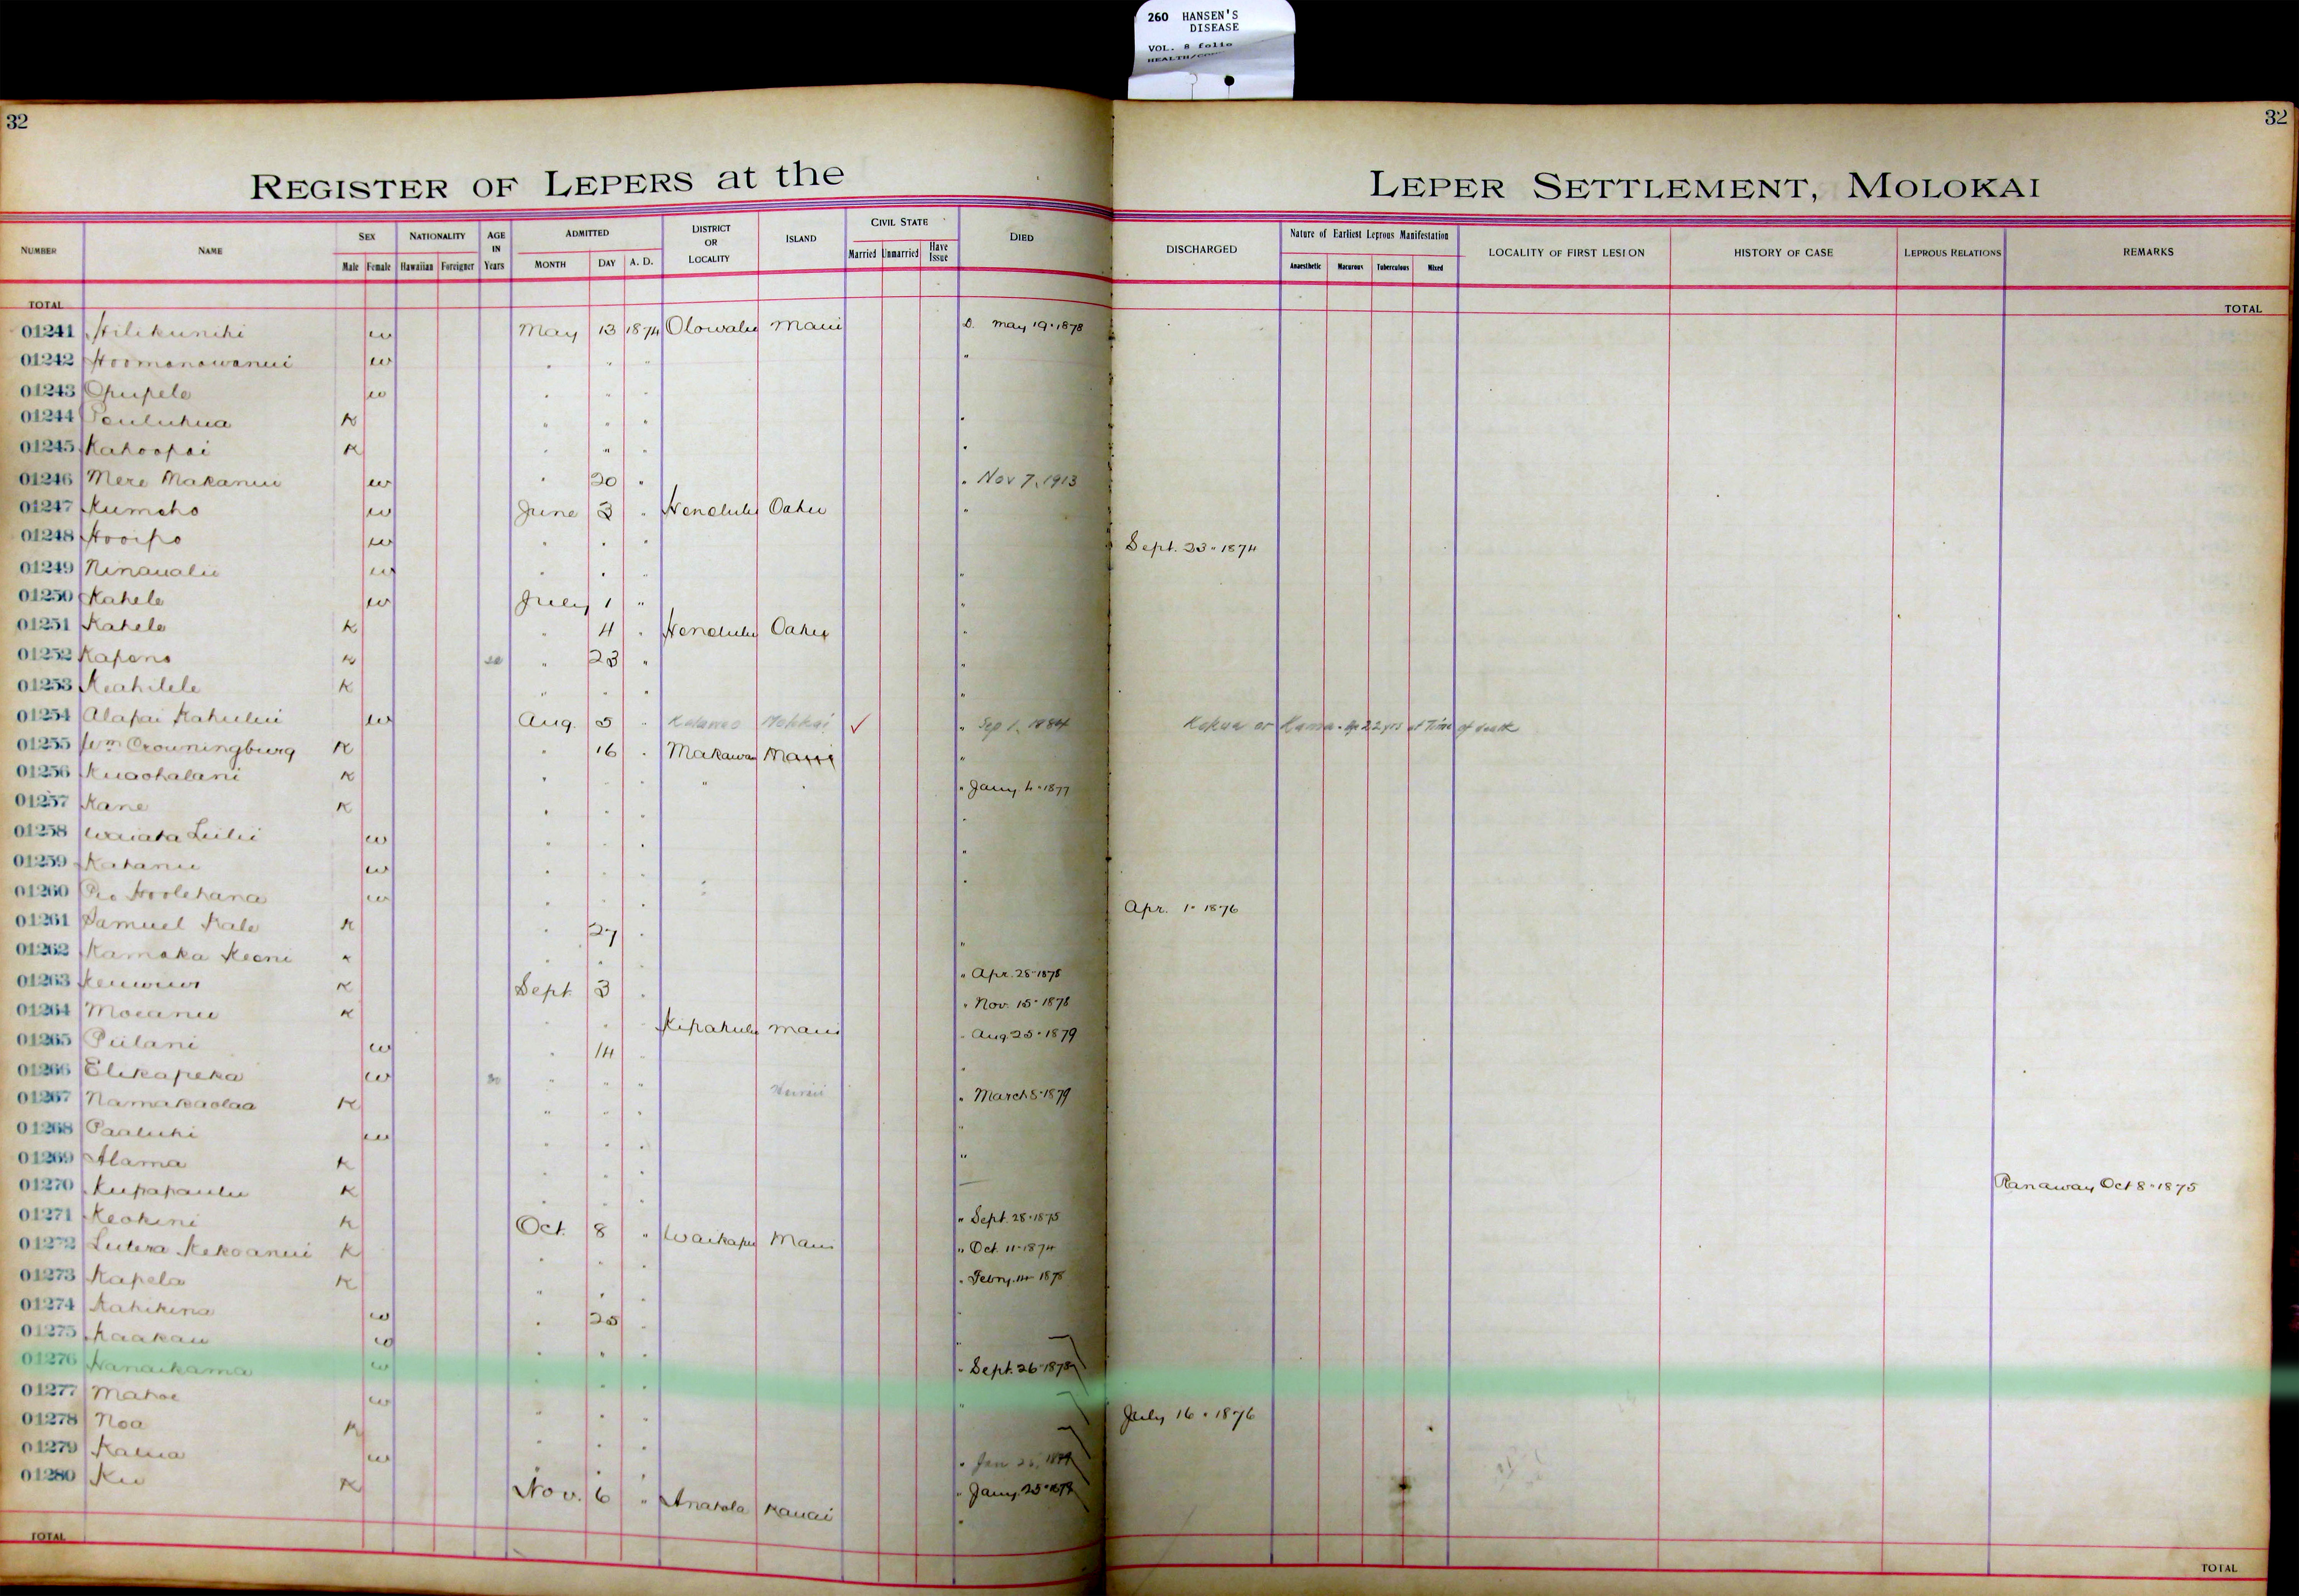 260 HANSEN'S
DISEASE
VOL. 8 folio
32
32
REGISTER OF LEPERS at the LEPER SETTLEMENT, MOLOKAI
NUMBER NAME SEX Male Female NATIONALITY Hawaiian Foreigner AGE IN Years ADMITTED MONTH DAY A. D. DISTRICT OR LOCALITY ISLAND CIVIL STATE Married Unmarried Have Issue DIED DISCHARGED Nature of Earliest Leprous Manifestation Anaesthetic Macurous Tuberculous Mixed LOCALITY OF FIRST LESION HISTORY OF CASE LEPROUS RELATIONS REMARKS
TOTAL TOTAL
01241 Hilikunihi w May 13 1874 Olowalu Maui D. May 19 · 1878
01242 Hoomanawanui w " " " "
01243 Opupele w " " "
01244 K " " " "
01245 Kahoopai K " " " "
01246 Mere Makanui w " 20 " " Nov 7, 1913
01247 Kumoho w June 3 " Honolulu Oahu "
01248 Hooipo w " " " Sept. 23 · 1874
01249 Ninaualii w " " " "
01250 Kahele w July 1 " "
01251 Kahele K " 4 " Honolulu Oahu "
01252 Kapono K " 23 " "
01253 Keahilele K " " " "
01254 Alapai Kahului w Aug. 5 " Molokai ✓ " Sep 1, 1884 Kokua or Kamaa. Age 22 yrs at Time of death
01255 Wm Crowningburg K " 16 " Makawao Maui "
01256 Kuaohalani K " " " " " " Jany 4 · 1877
01257 Kane K " " " "
01258 Waiaka Luilii w " " " "
01259 Kahanu w " " " "
01260 Hoolehana w " " " Apr. 1 · 1876
01261 Samuel Kale K " 27 " "
01262 Kamaka Keoni K " " " " Apr. 28 · 1878
01263 K Sept 3 " " Nov. 15 · 1878
01264 Moeanu K " " " Kipahulu Maui " Aug 25 · 1879
01265 Piilani w " 14 " "
01266 Elikapeka w 30 " " " Hawaii " March 8 · 1879
01267 Namakaolaa K " " " "
01268 Paaluhi w " " " "
01269 Alama K " " "
01270 Kupapaulu K " " " " Sept. 28 · 1875 Ranaway Oct 8 · 1875
01271 Keokini K Oct. 8 " Waikapu Maui " Oct. 11 · 1874
01272 Lutera Kekoanui K " " " " Febry. 14 · 1878
01273 Kapela K " " " "
01274 Kahikina w " 25 " "
01275 Kaakau w " " " " Sept. 26 · 1878
01276 Hanaikama w " " " "
01277 Mahoe w " " " July 16 · 1876
01278 Noa K " " " " Jan 26,
01279 Kalua w " " " " Jany. 25
01280 Ku K Nov. 6 " Anahola Kauai "
TOTAL TOTAL